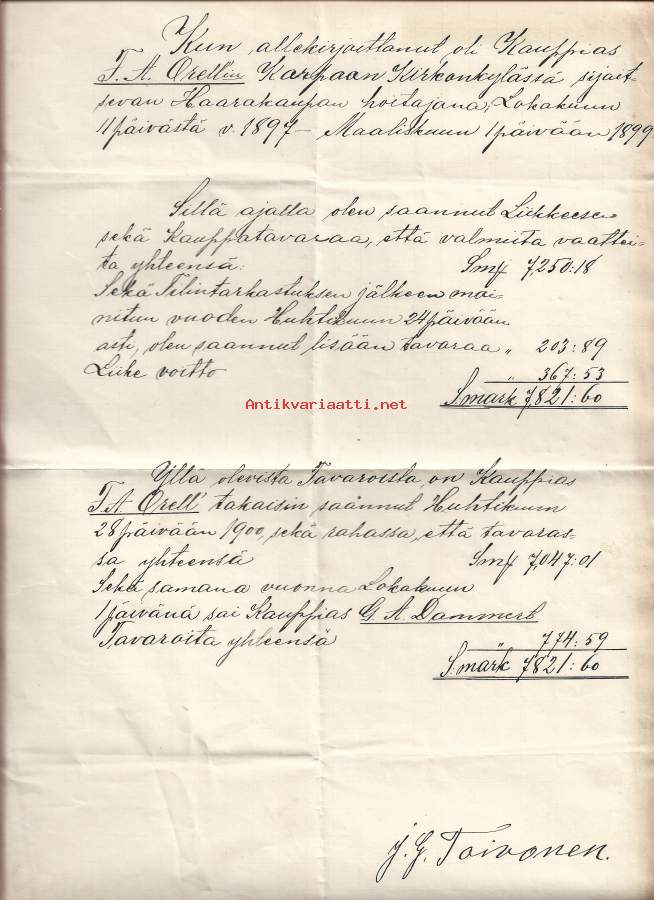 Kun allekirjoittanut oli Kauppias
F. A. Orell'in Karjaan Kirkonkylässä sijait-
sevan Haarakaupan hoitajana, Lokakuun
11 päivästä v. 1897 – Maaliskuun 1 päivään 1899.
Sillä ajalla olen saannut Liikkeesen
sekä Kauppatavaraa, että valmiita vaattei-
ta yhteensä. Smf 7,250:18
Sekä Tilintarkastuksen jälkeen mai-
nitun vuoden Huhtikuun 24 päivään
asti, olen saannut lisään tavaraa „ 203:89
Liike voitto „ 367:53
S.mark 7,821:60
Antikvariaatti.net
Yllä olevista Tavaroista, on Kauppias
F. A. Orell' takaisin saannut Huhtikuun
28 päivään 1900, sekä rahassa, että tavaras-
sa yhteensä Smf 7,047:01
Sekä samana vuonna Lokakuun
1 päivänä sai Kauppias G. A. Dammert
Tavaroita yhteensä „ 774:59
S.mark 7,821:60
J. G. Toivonen.